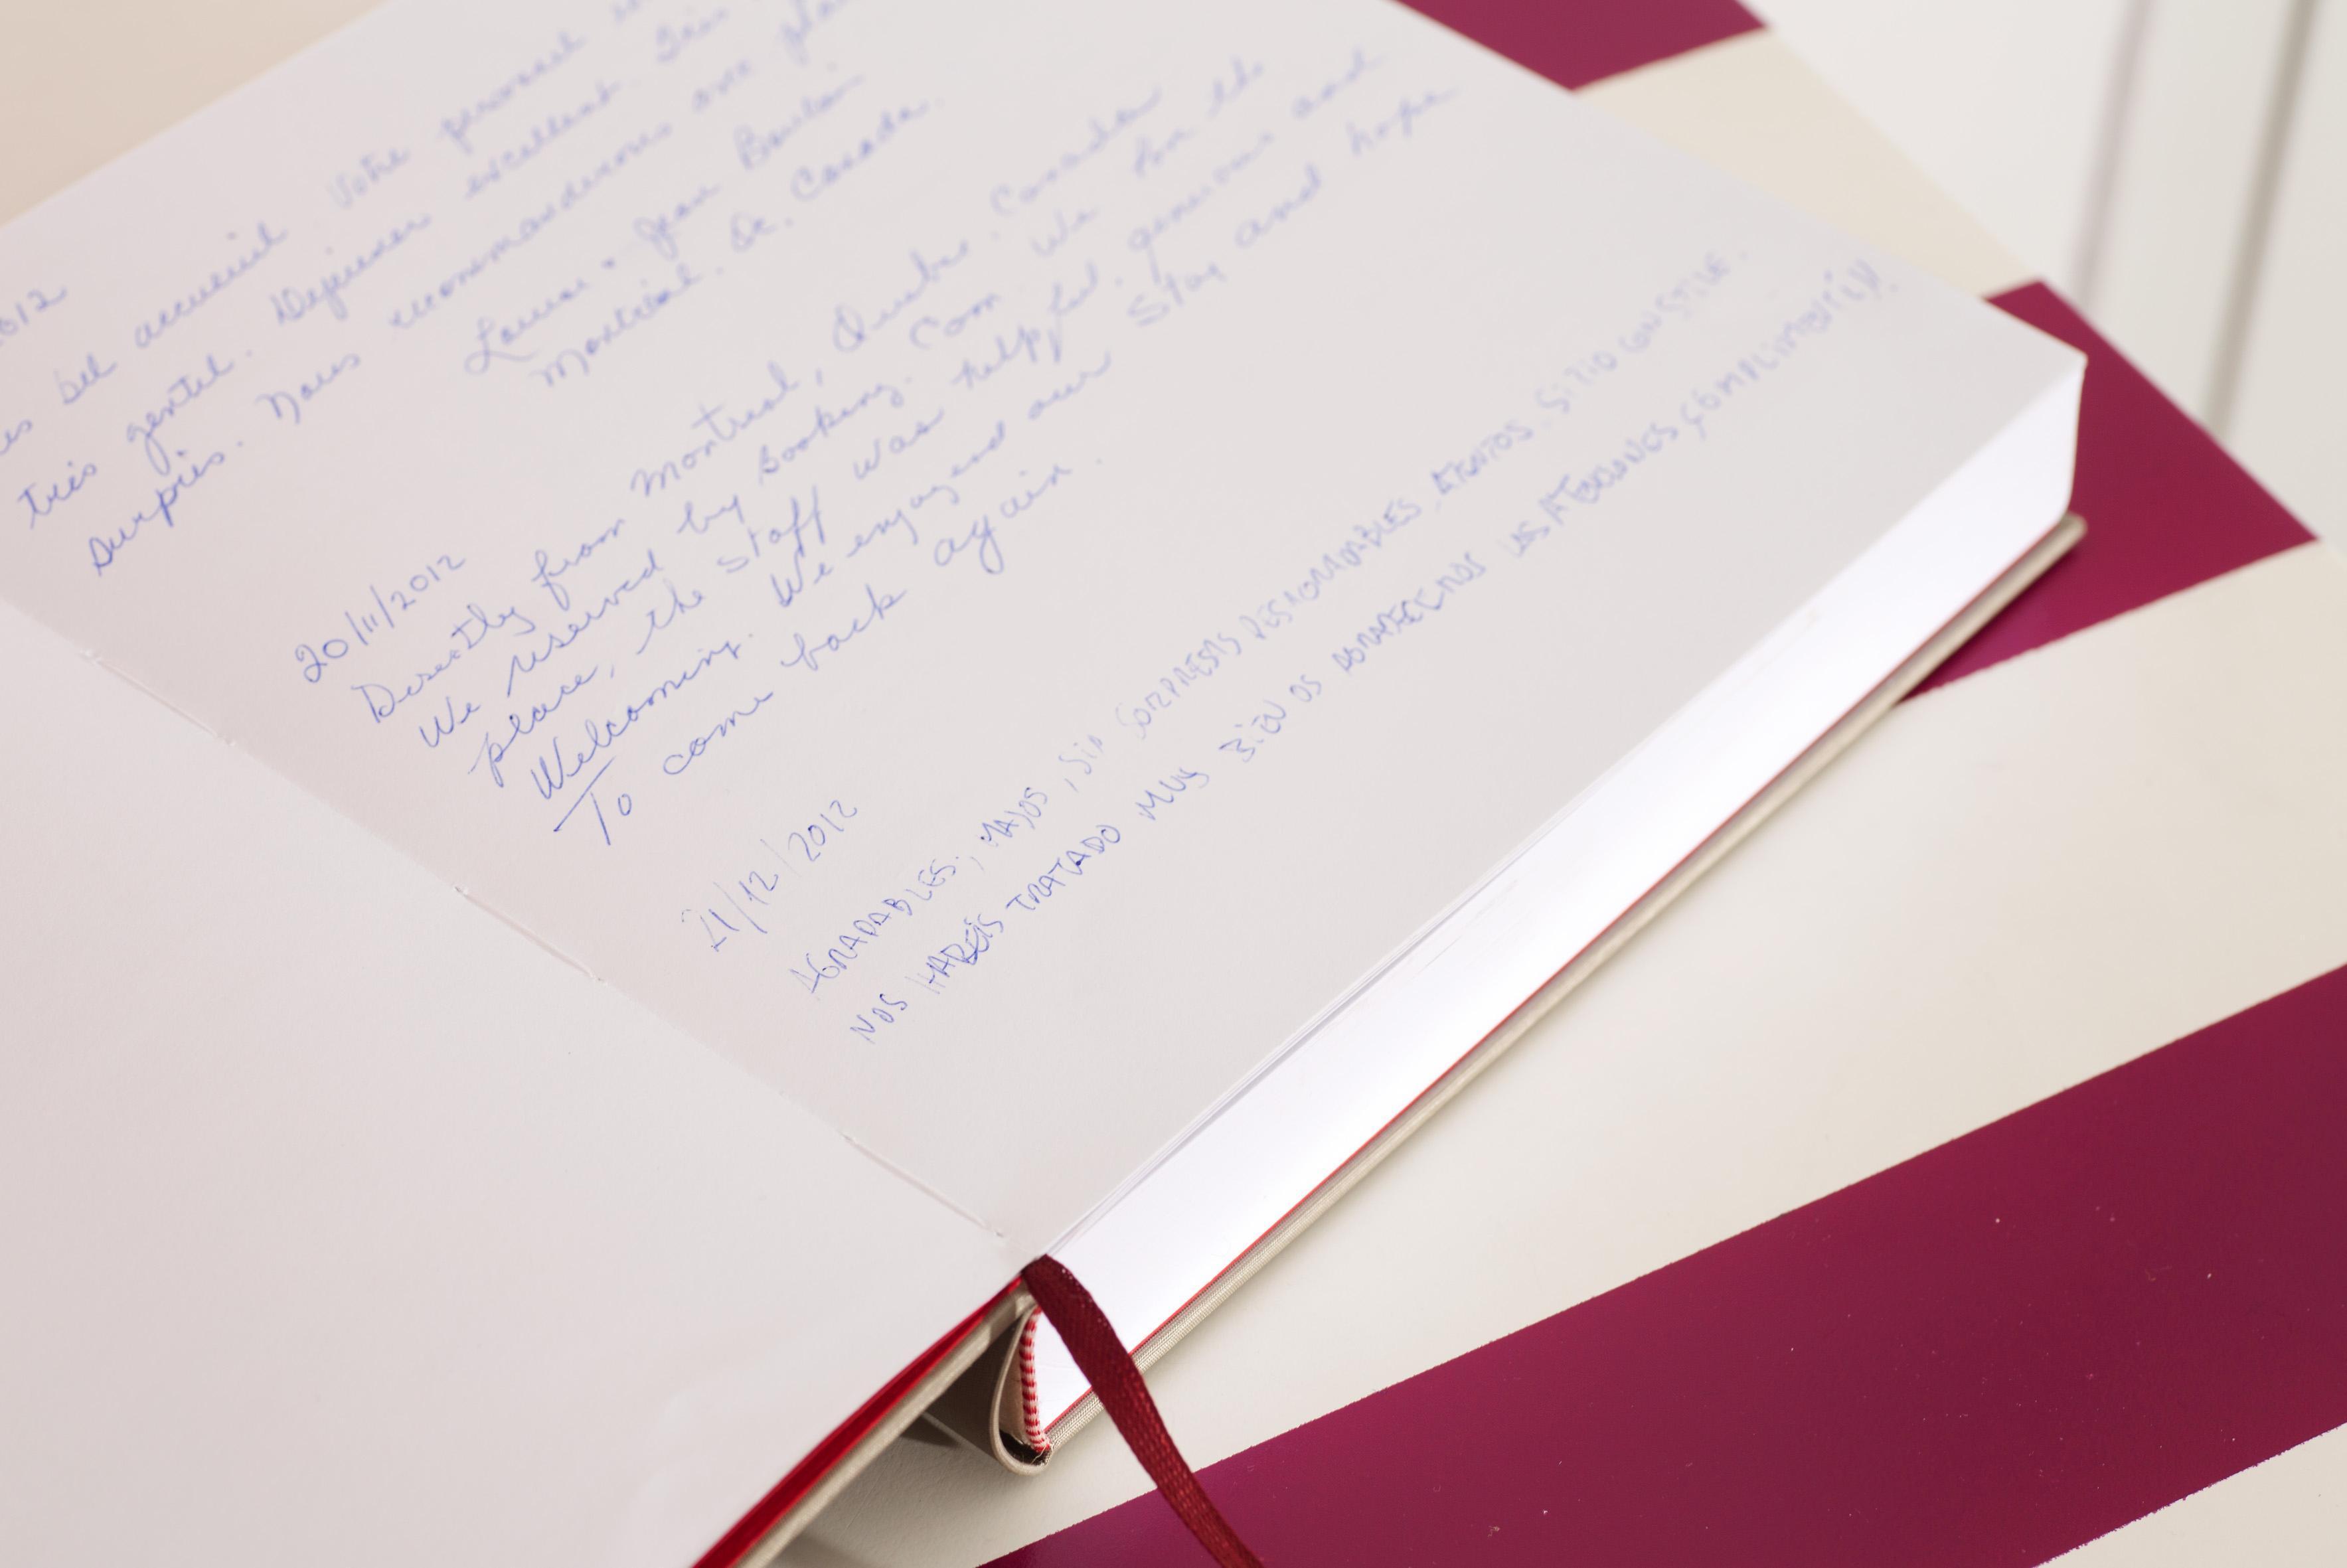 2012
bel accueil. Votre personnel
très gentil. Dejeuner excellent. Très
surpris. Nous recommanderons
Louise & Jean
Montréal. Qc. Canada.
20/11/2012
Directly from Montreal, Quebec. Canada
We reserved by booking. Com We for the
place, the staff was helpful. generous and
Welcoming. We enjoyed our stay and hope
To come back again.
21/12/2012
AGRADABLES, MAJOS, SIN SORPRESAS DESAGRADABLES, ATENTOS. SITIO CON STILE.
NOS HABEIS TRATADO MUY BIEN OS AGRADECEMOS LAS ATENCIONES